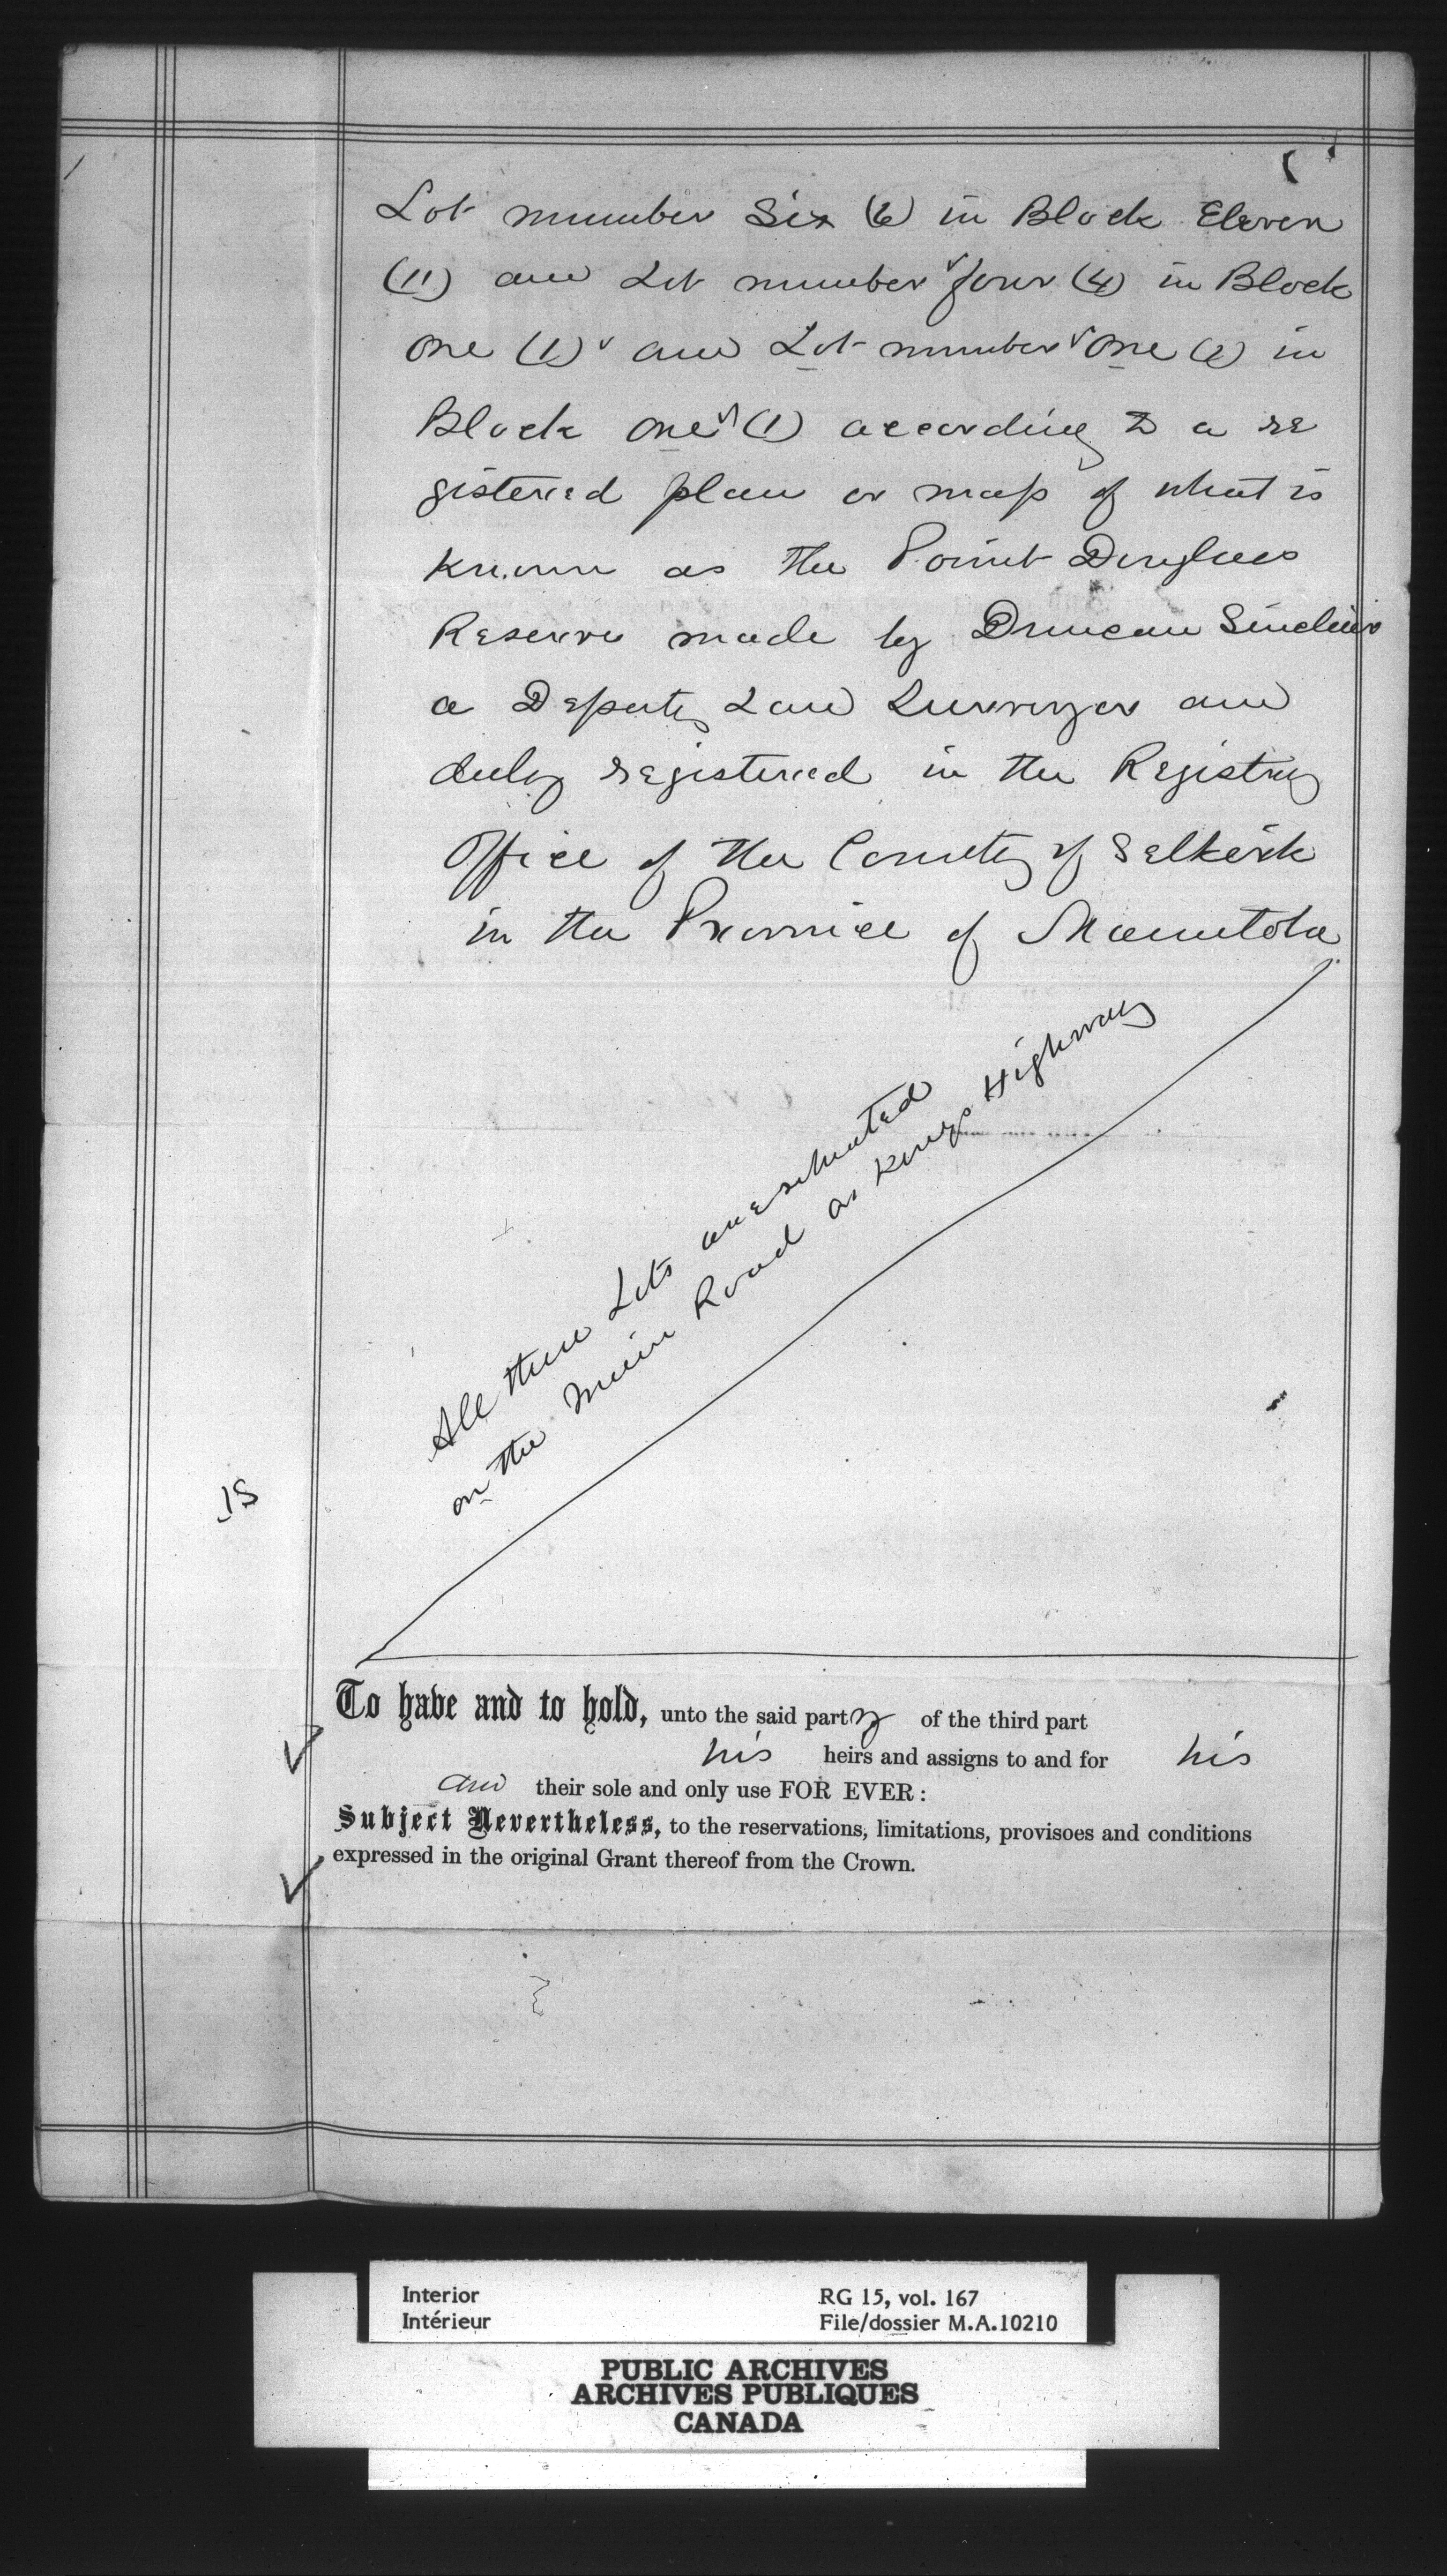 Lot number Six (6) in Block Eleven
(11) and Lot number four (4) in Block
one (1) and Lot number One (1) in
Block one (1) according to a re
gistered plan or map of what is
known as the Point Douglas
Reserve made by Duncan Sinclair
a Deputy Land Surveyor and
duly registered in the Registry
Office of the County of Selkirk
in the Province of Manitoba
All these Lots are situated
on the Main Road or Kings Highway
To have and to hold, unto the said party of the third part
his heirs and assigns to and for his
and their sole and only use FOR EVER:
Subject Nevertheless, to the reservations, limitations, provisoes and conditions
expressed in the original Grant thereof from the Crown.
Interior RG 15, vol. 167
Intérieur File/dossier M.A.10210
PUBLIC ARCHIVES
ARCHIVES PUBLIQUES
CANADA